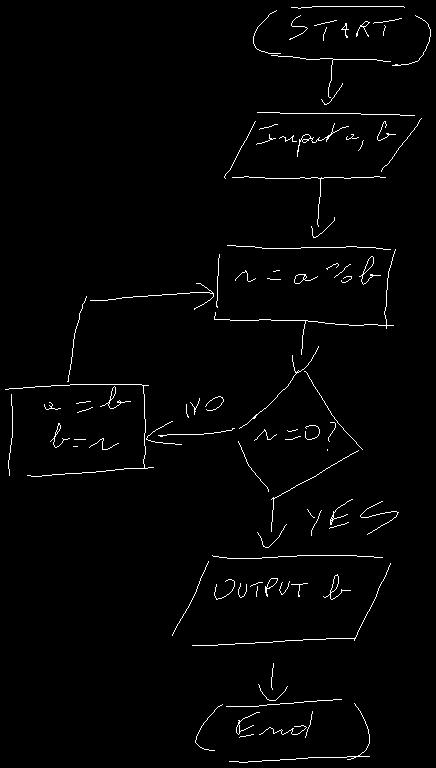 START
Input a, b
r = a % b
NO
a = b
b = r
r = 0?
YES
OUTPUT b
End